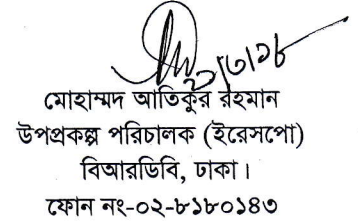 ২১/৩/১৮
মোহাম্মদ আতিকুর রহমান
উপপ্রকল্প পরিচালক (ইরেসপো)
বিআরডিবি, ঢাকা।
ফোন নং-০২-৮১৮০১৪৩